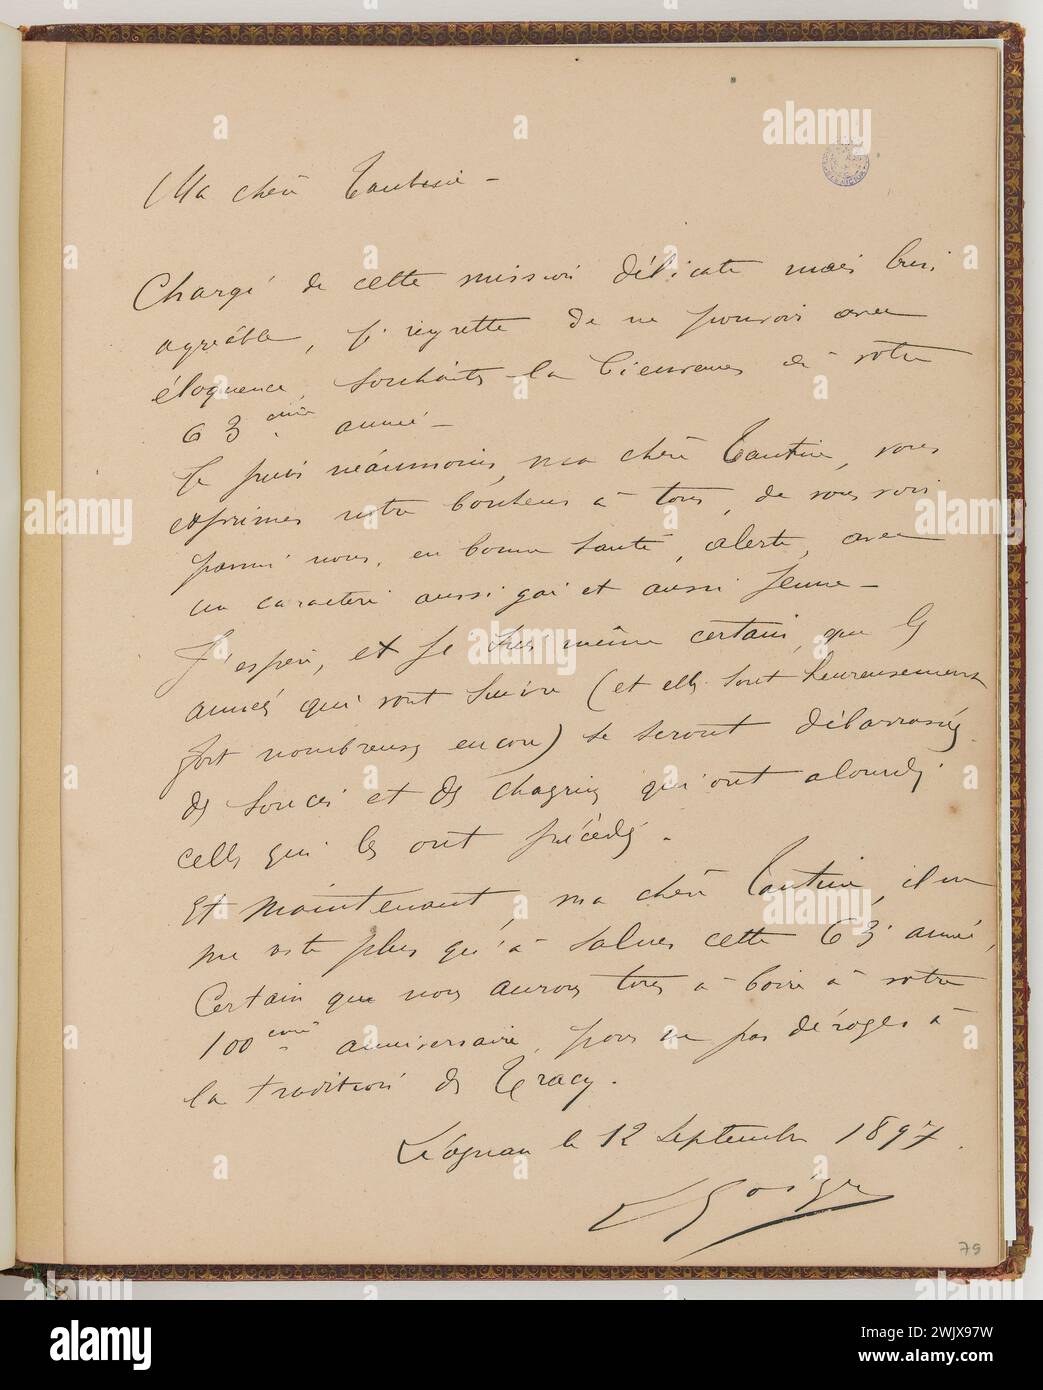 Ma chère Tantine –
Chargé de cette mission délicate mais bien
agréable, je regrette de ne pouvoir avec
éloquence, souhaiter la bienvenue à votre
63ème année –
Je puis néanmoins, ma chère Tantine, vous
exprimer notre bonheur à tous, de vous voir
parmi nous, en bonne santé, alerte, avec
un caractère aussi gai et aussi jeune –
J'espère, et je suis même certain, que les
années qui vont suivre (et elles sont heureusement
fort nombreuses encore) se seront débarrassées
des soucis et des chagrins qui ont alourdi
celles qui les ont précédés.
Et maintenant, ma chère Tantine, il ne
me reste plus qu'à saluer cette 63e année,
Certain que nous aurons tous à boire à votre
100ème anniversaire, pour ne pas déroger à
la tradition de Tracy.
Léognan le 12 Septembre 1897.
79
alamy
Image ID: 2WJX97W
www.alamy.com